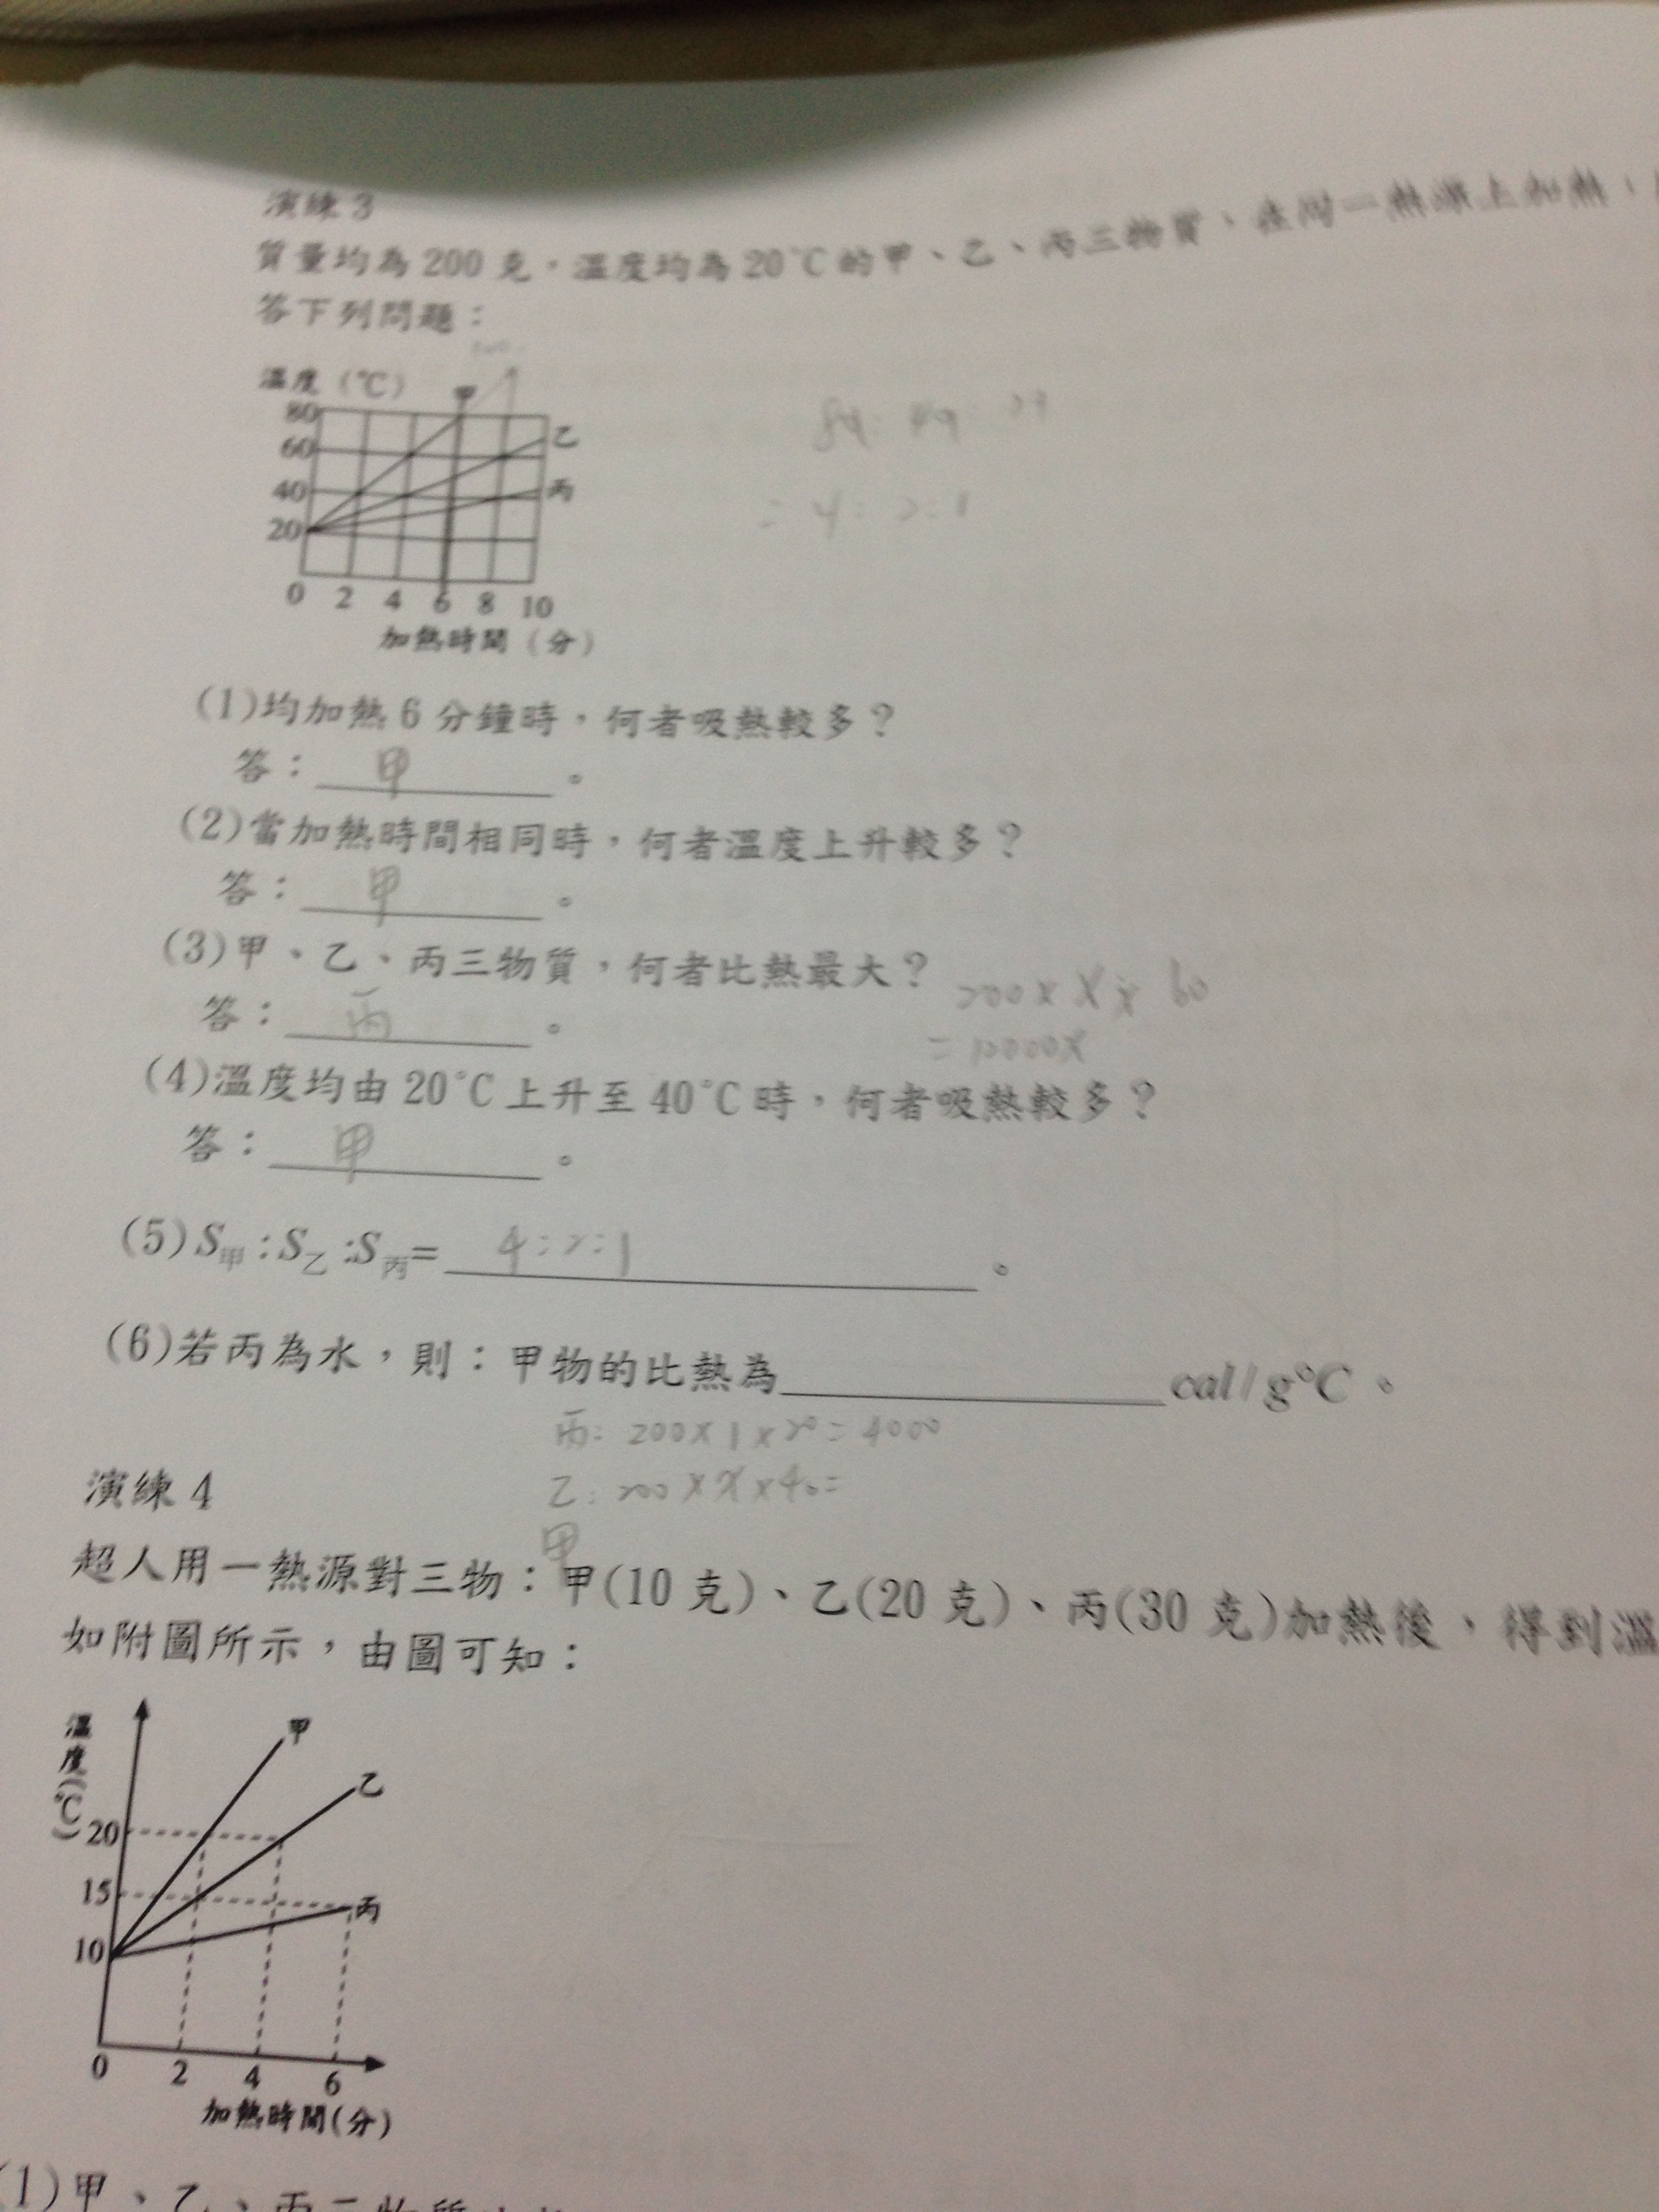 演練3
質量均為200克，溫度均為20℃的甲、乙、丙三物質，在同一熱源上加熱，
答下列問題：
溫度（℃）
甲
80
乙
60
丙
40
20
0 2 4 6 8 10
加熱時間（分）
84: 49
= 4: 2:1
(1)均加熱6分鐘時，何者吸熱較多？
答： 甲 。
(2)當加熱時間相同時，何者溫度上升較多？
答： 甲 。
(3)甲、乙、丙三物質，何者比熱最大？
答： 丙 。
200 x X x 60
= 12000X
(4)溫度均由20℃上升至40℃時，何者吸熱較多？
答： 甲 。
(5)S甲:S乙:S丙= 4:2:1 。
(6)若丙為水，則：甲物的比熱為 cal/g℃。
丙: 200x1x20=4000
乙: 200xXx40=
甲
演練4
超人用一熱源對三物：甲(10克)、乙(20克)、丙(30克)加熱後，得到溫
如附圖所示，由圖可知：
溫度(℃)
甲
乙
20
15
丙
10
0 2 4 6
加熱時間(分)
(1)甲、乙、丙三物質